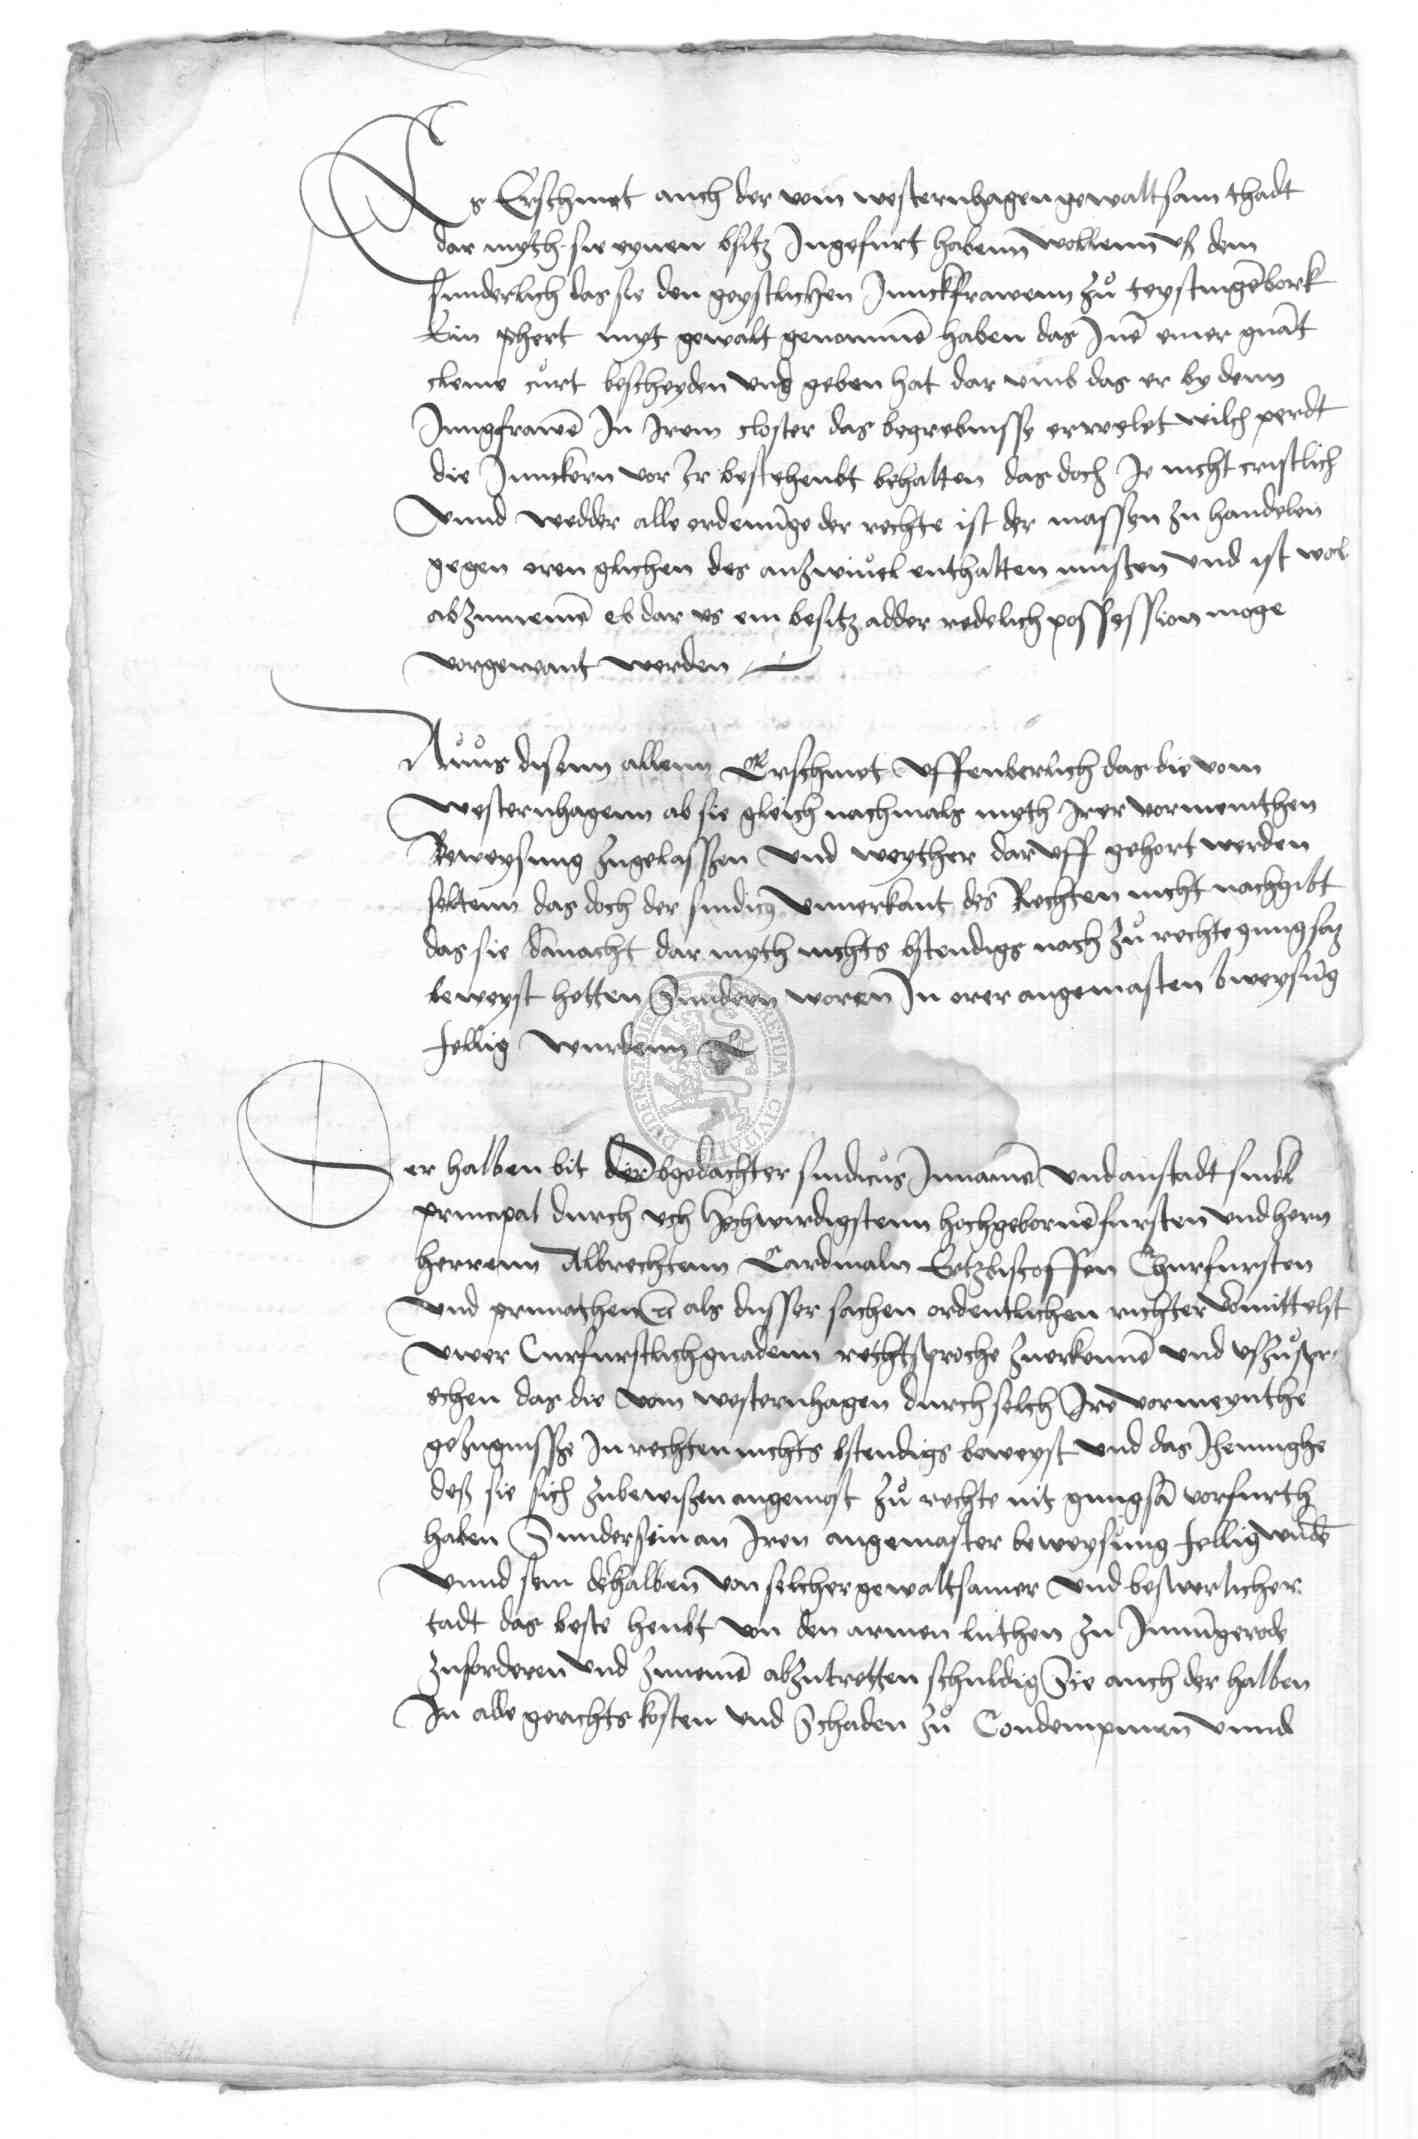 Es Erschinet auch der vom westernhagen gewaltsam thadt
dar myth sie eynen bsitz Ingefurt habenn wollenn vß dem
sunderlich das sie den geystlichen Junckfrawenn zů teystingēbork
Ein phert myt gewalt genommē haben das Inē einer gnāt
cleme curt bescheyden vnd geben hat dar vmb das er by denn
Jungfrawē In Irem closter das begrebnisse erwelet wilch perdt
die Junckern vor Ir bestehenbt behalten das doch Je nicht cristlich
Vnnd wedder alle ordenūge der rechte ist der massen zu handelen
gegen oren glichen des anzwiuel enthalten musten vnd ist wol
abzunemē eb dar vs ein besitz adder redelich possession moge
vorgewant werden
Auůs disenn allenn Erschinet vffenberlich das die vom
westernhagenn ab sie gleich nachmals myth Irer vormeinthen
Beweysung zugelassen vnd weyther daruff gehort werden
soltenn das doch der sindicus vnnerkant des Rechten nicht nachgibt
das sie dānacht dar myth nichts bstendigs nach zů rechte gnugsaz
beweyst hetten Sundern woren In orer angemasten bweysūg
fellig wurdenn
Der halben bit der obgedachter sindicus Innamē vnd anstadt siner
principal durch uch Hochwirdigstenn hochgebornē fursten vnd hern
herrenn Albrechtenn Cardinaln Ertzbiscoffen Churfursten
vnd primathen als disser sachen ordentlichen richter vōmittelst
uwer Curfurstlich gnadenn rechtsproche zuerkennē vnd vszůspr-
echen das die vom westernhagen durch solch Ire vormeynthe
gezugnisse In rechten nichts bstendigs beweyst vnd das Jhennighe
deß sie sich zubewisen angemast zů rechte nit gnugsā vorfurth
haben Sunder sein an Iren angemaster beweysung fellig wordē
Vnnd sein dehalben von solcher gewaltsamer vnd beswerlicher
tadt das beste heubt von den armen luthen zu Immīgerode
zuforderen vnd zunemē abzutretten schuldig Sie auch der halben
In alle gerichts kosten vnd Schaden zů Condempniren vnnd
DUDERSTADIENSIS CIVITATIS